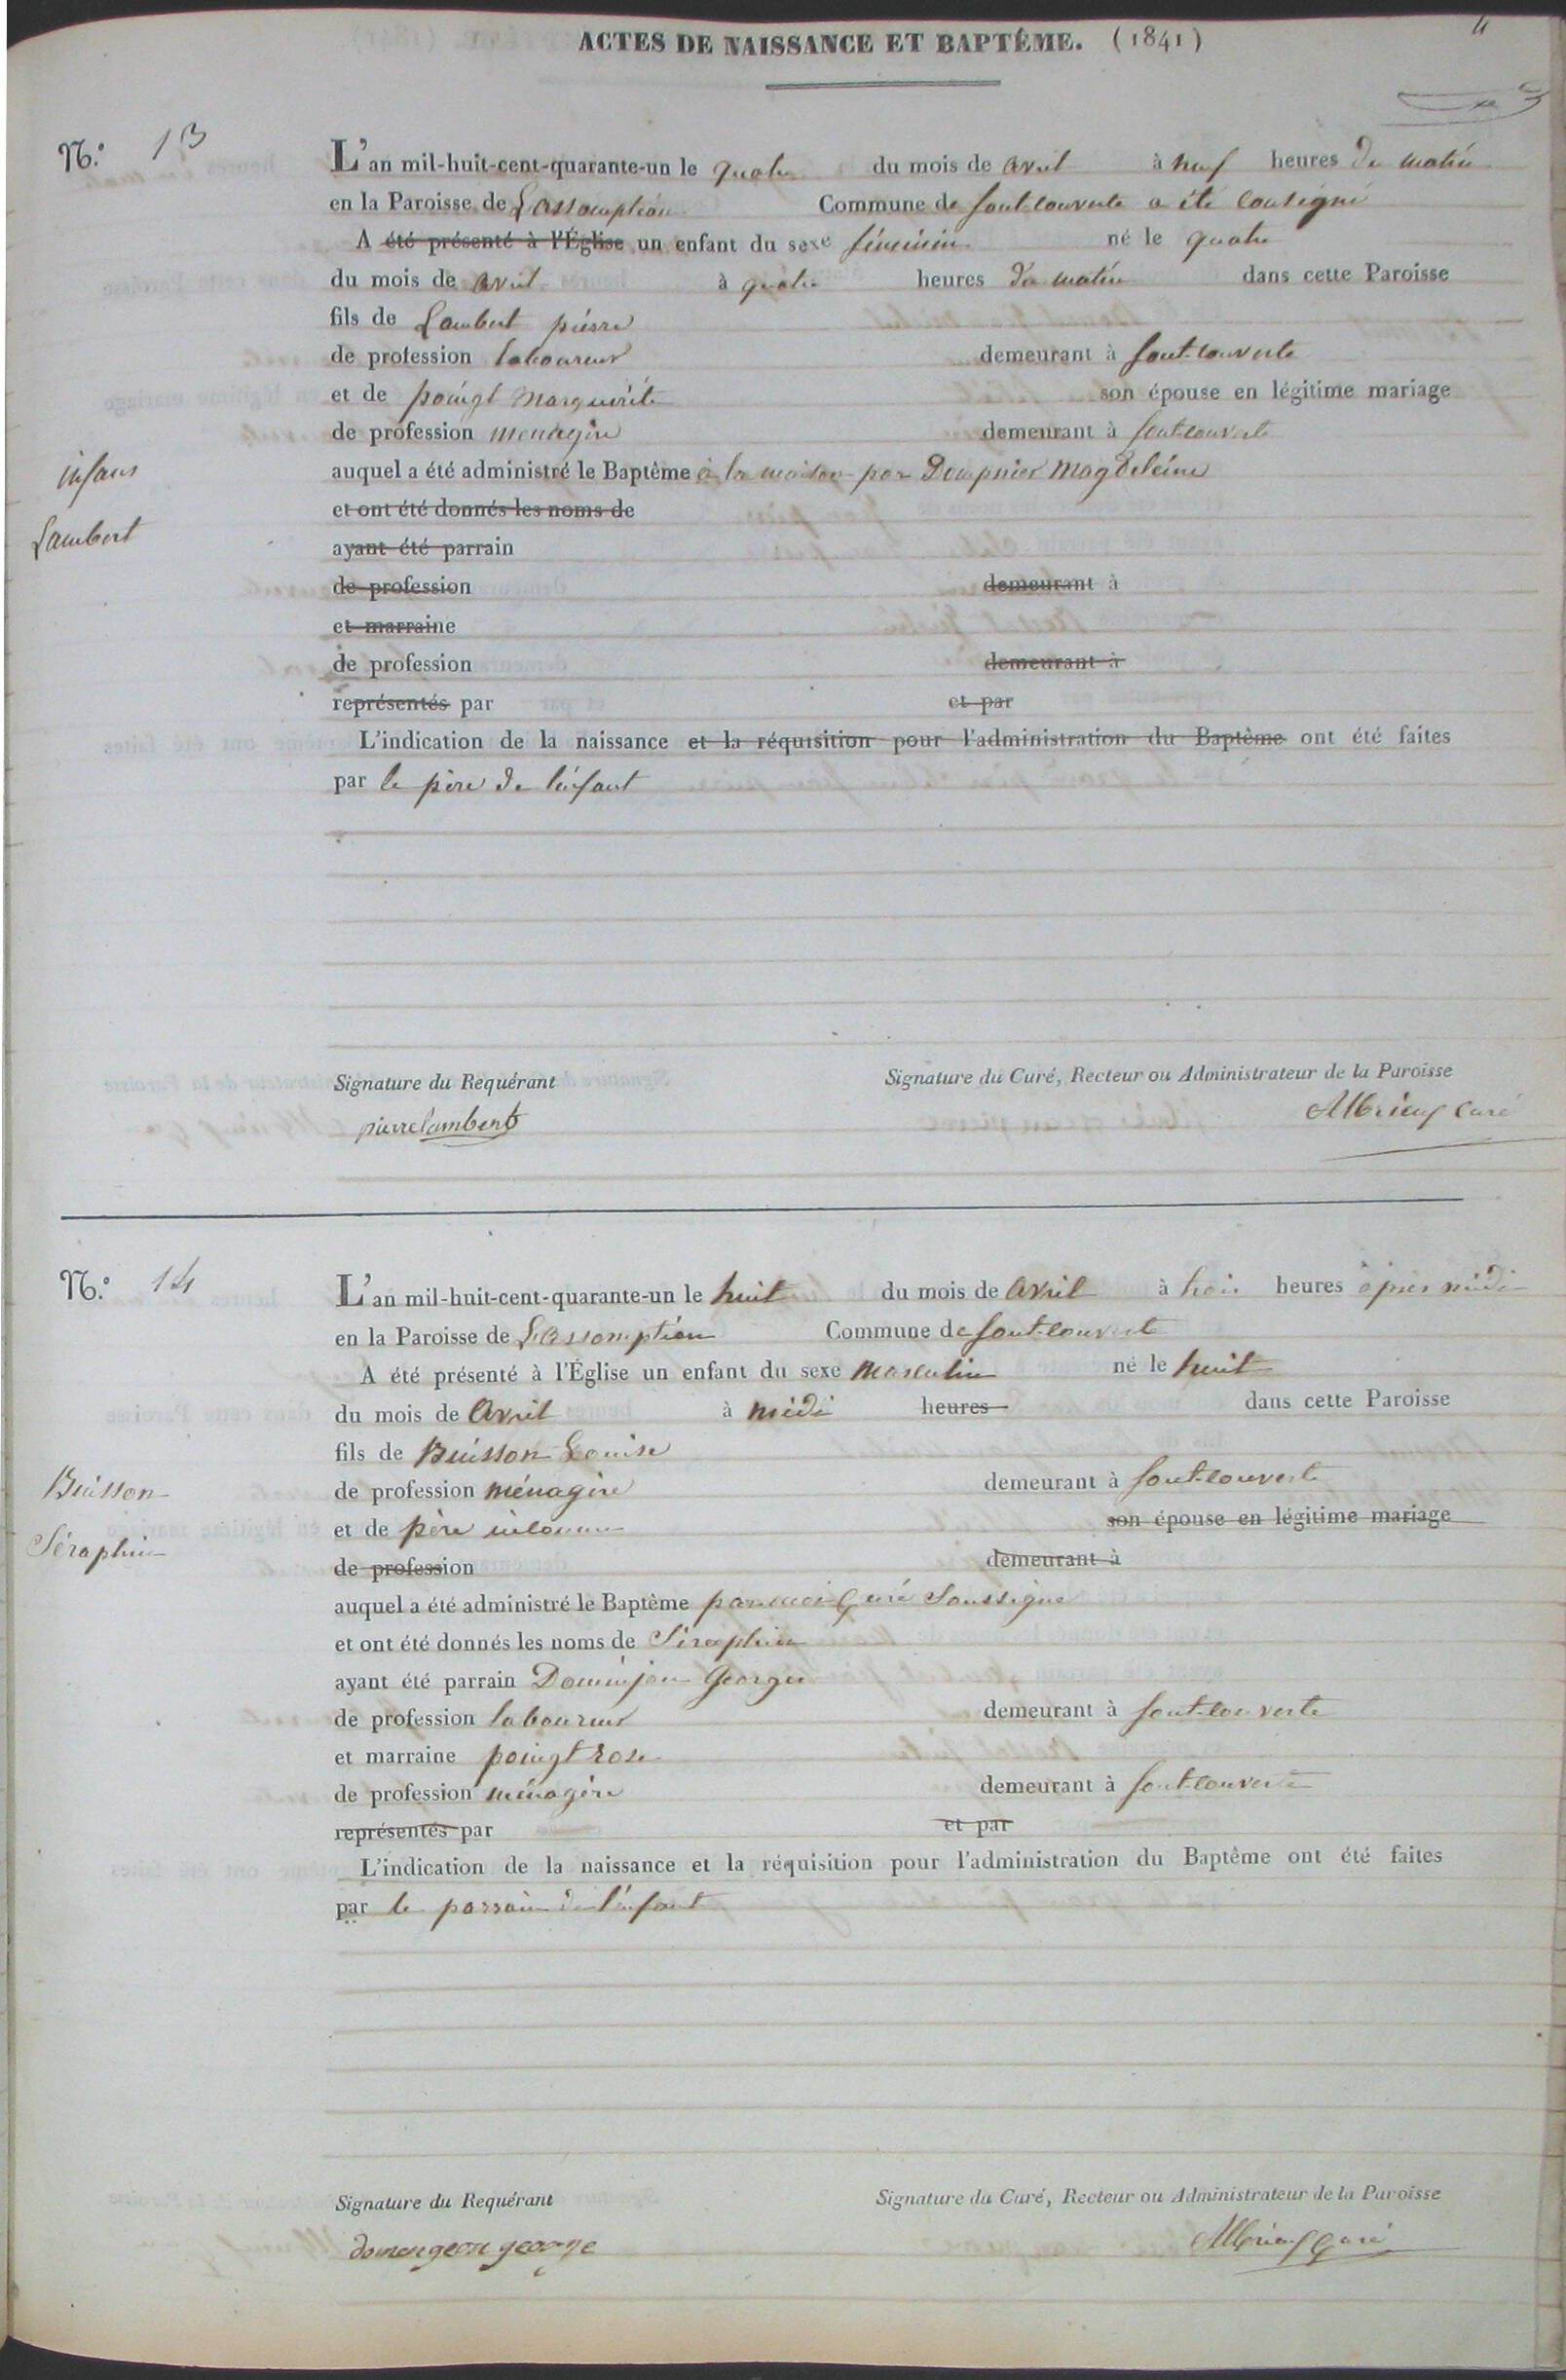 ACTES DE NAISSANCE ET BAPTÊME. (1841)
N.° 13
L'an mil-huit-cent-quarante-un le quatre du mois de avril à neuf heures du matin
en la Paroisse de L'assomption Commune de font-couverte a été consigné
A été présenté à l'Église un enfant du sexe féminin né le quatre
du mois de avril à quatre heures du matin dans cette Paroisse
fils de Lambert pierre
de profession laboureur demeurant à font-couverte
et de poingt marguerite son épouse en légitime mariage
de profession ménagère demeurant à font-couverte
infans
Lambert
auquel a été administré le Baptême à la maison par Dompnier Magdeleine
et ont été donnés les noms de
ayant été parrain
de profession demeurant à
et marraine
de profession demeurant à
représentés par et par
L'indication de la naissance et la réquisition pour l'administration du Baptême ont été faites
par le père de l'enfant
Signature du Requérant Signature du Curé, Recteur ou Administrateur de la Paroisse
pierre lambert Albrieux Curé
N.° 14
L'an mil-huit-cent-quarante-un le huit du mois de avril à trois heures après midi
en la Paroisse de L'assomption Commune de font-couverte
A été présenté à l'Église un enfant du sexe masculin né le huit
du mois de avril à midi heures dans cette Paroisse
fils de Buisson Louise
Buisson
Séraphin
de profession ménagère demeurant à font-couverte
et de père inconnu son épouse en légitime mariage
de profession demeurant à
auquel a été administré le Baptême par moi Curé Soussigné
et ont été donnés les noms de Séraphin
ayant été parrain Dominjon George
de profession laboureur demeurant à font-couverte
et marraine poingt rose
de profession ménagère demeurant à font-couverte
représentés par et par
L'indication de la naissance et la réquisition pour l'administration du Baptême ont été faites
par le parrain de l'enfant
Signature du Requérant Signature du Curé, Recteur ou Administrateur de la Paroisse
domengeon george Albrieux Curé